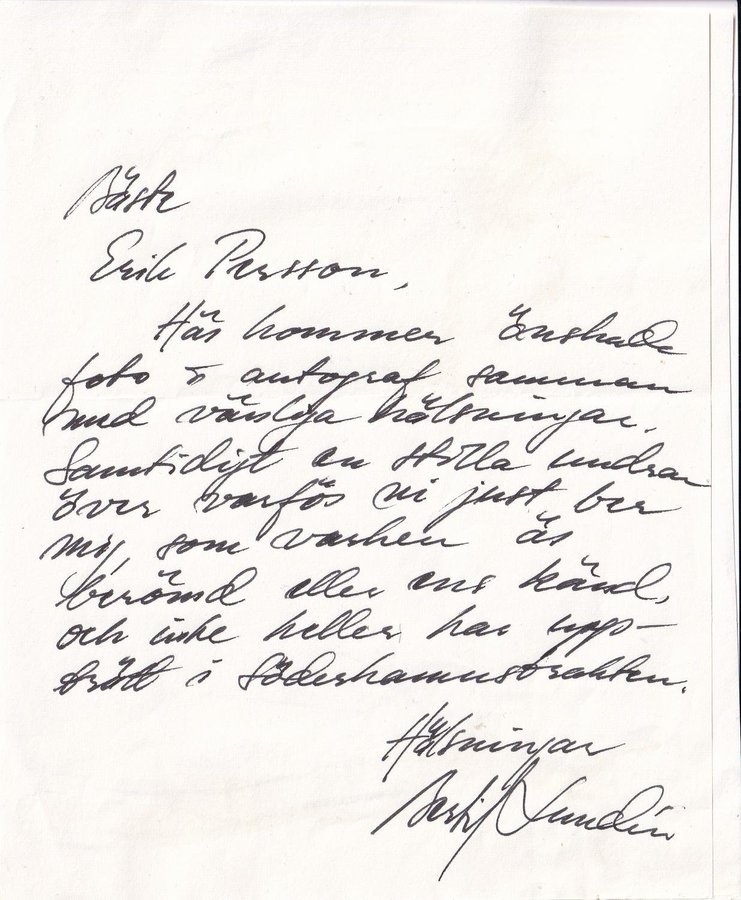 Bäste
Erik Persson,
Här kommer önskade
foto & autograf samman
med vänliga hälsningar.
Samtidigt en stilla undran
över varför ni just ber
mig, som varken är
berömd eller ens känd,
och inte heller har upp-
trätt i Söderhamnstrakten.
Hälsningar
Bertil Lundén